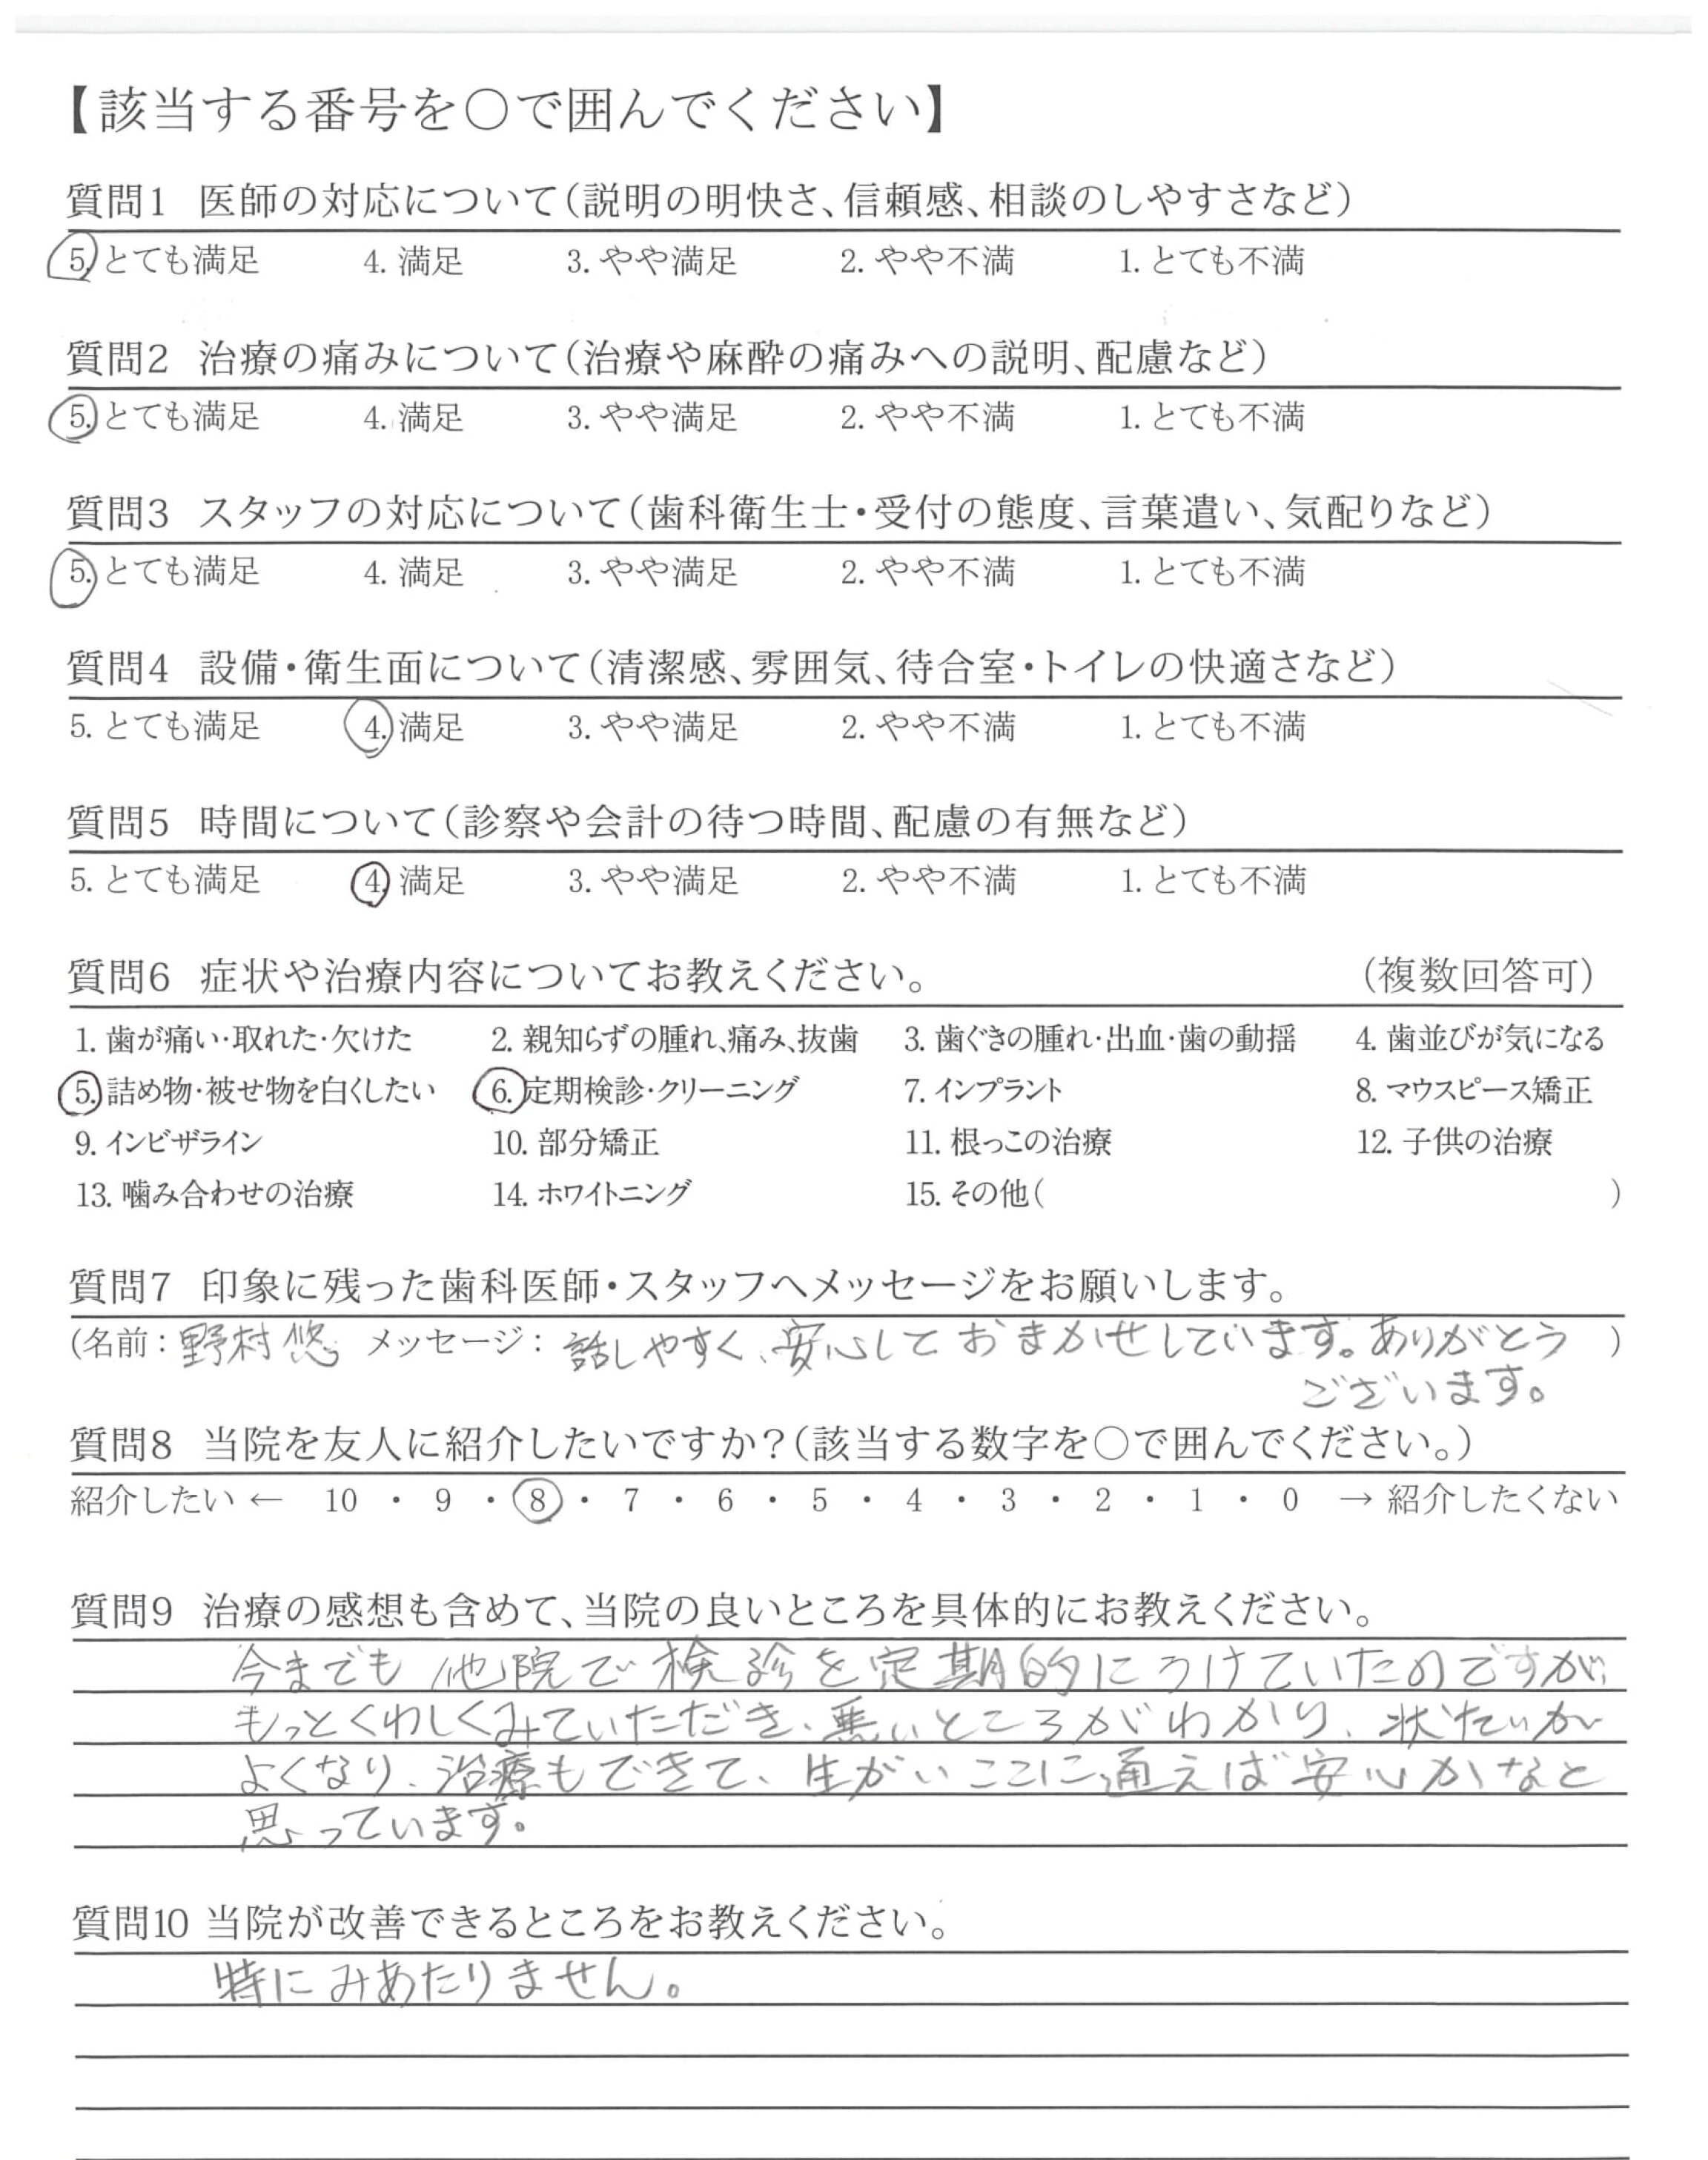 【該当する番号を○で囲んでください】
質問1 医師の対応について(説明の明快さ、信頼感、相談のしやすさなど)
5. とても満足 4. 満足 3. やや満足 2. やや不満 1. とても不満
質問2 治療の痛みについて(治療や麻酔の痛みへの説明、配慮など)
5. とても満足 4. 満足 3. やや満足 2. やや不満 1. とても不満
質問3 スタッフの対応について(歯科衛生士・受付の態度、言葉遣い、気配りなど)
5. とても満足 4. 満足 3. やや満足 2. やや不満 1. とても不満
質問4 設備・衛生面について(清潔感、雰囲気、待合室・トイレの快適さなど)
5. とても満足 4. 満足 3. やや満足 2. やや不満 1. とても不満
質問5 時間について(診察や会計の待つ時間、配慮の有無など)
5. とても満足 4. 満足 3. やや満足 2. やや不満 1. とても不満
質問6 症状や治療内容についてお教えください。 (複数回答可)
1. 歯が痛い・取れた・欠けた 2. 親知らずの腫れ、痛み、抜歯 3. 歯ぐきの腫れ・出血・歯の動揺 4. 歯並びが気になる
5. 詰め物・被せ物を白くしたい 6. 定期検診・クリーニング 7. インプラント 8. マウスピース矯正
9. インビザライン 10. 部分矯正 11. 根っこの治療 12. 子供の治療
13. 噛み合わせの治療 14. ホワイトニング 15. その他( )
質問7 印象に残った歯科医師・スタッフへメッセージをお願いします。
(名前：野村 悠 メッセージ：話しやすく、安心しておまかせしています。ありがとう )
ございます。
質問8 当院を友人に紹介したいですか？(該当する数字を○で囲んでください。)
紹介したい ← 10 ・ 9 ・ 8 ・ 7 ・ 6 ・ 5 ・ 4 ・ 3 ・ 2 ・ 1 ・ 0 → 紹介したくない
質問9 治療の感想も含めて、当院の良いところを具体的にお教えください。
今までも他院で検診を定期的にうけていたのですが、
もっとくわしくみていただき、悪いところがわかり、状たいが
よくなり、治療もできて、生がいここに通えば安心かなと
思っています。
質問10 当院が改善できるところをお教えください。
特にみあたりません。